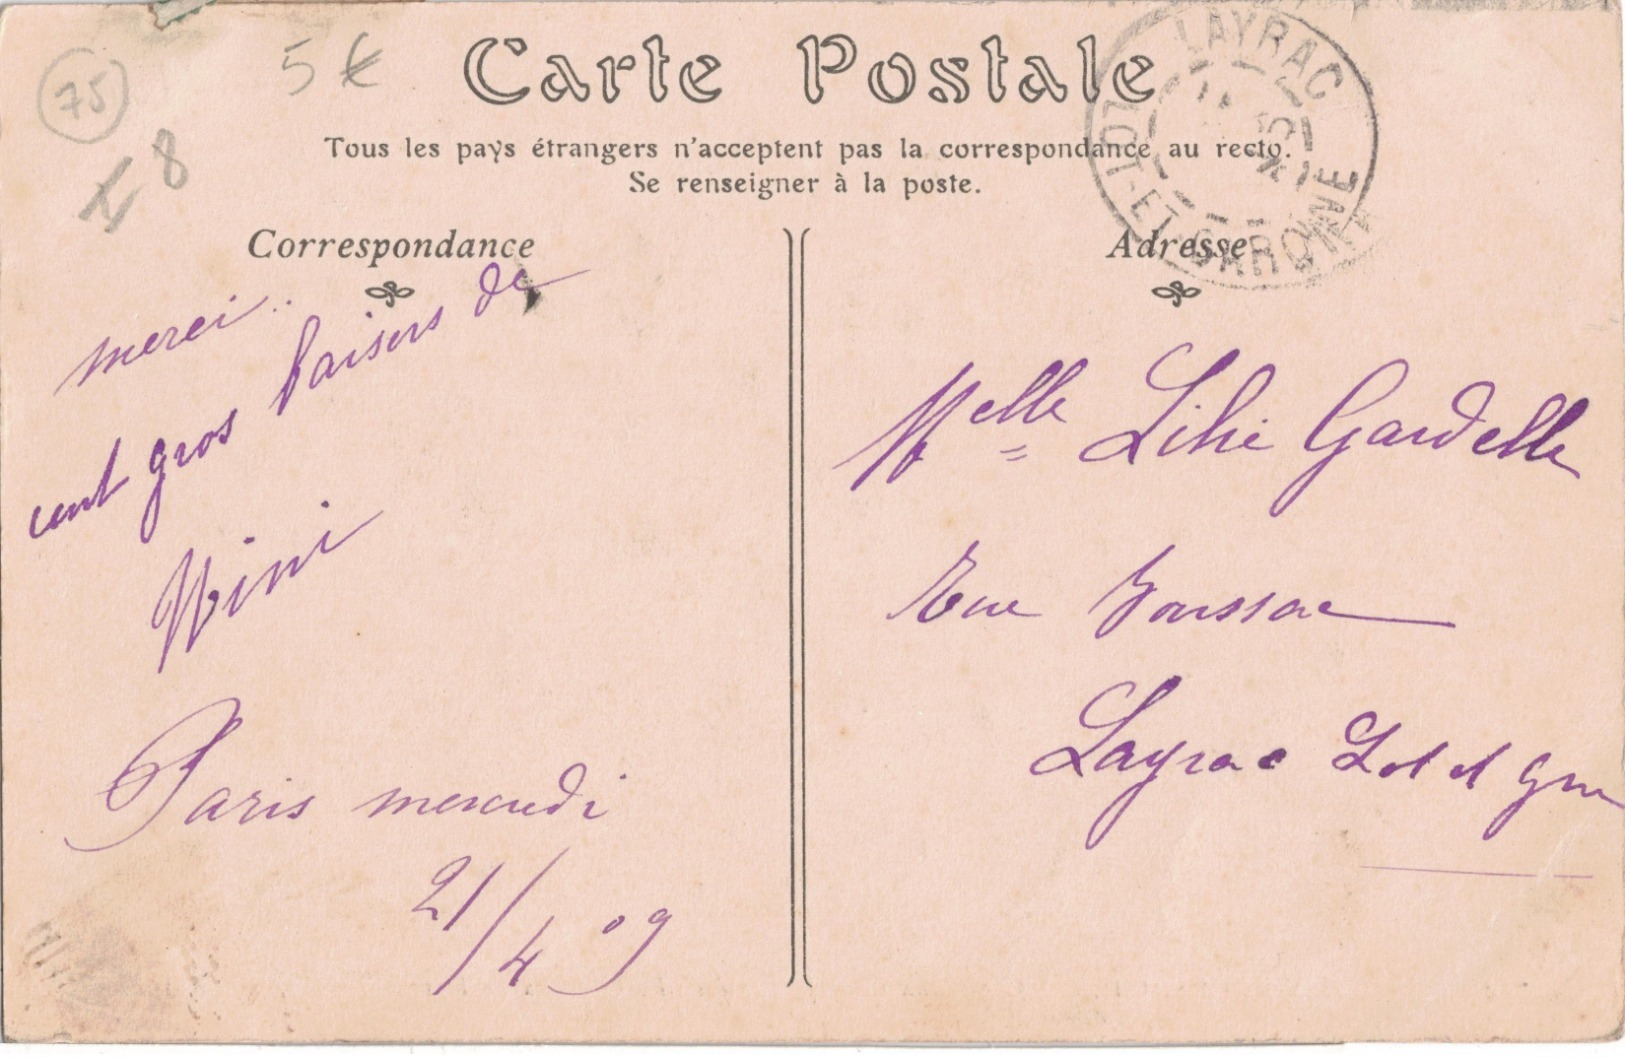 75
5 €
8
Carte Postale
Tous les pays étrangers n'acceptent pas la correspondance au recto.
Se renseigner à la poste.
Correspondance
merci..
cent gros baisers de
Nini
Paris mercredi
21/4 09
LAYRAC
LOT-ET-GARONNE
Adresse
Melle Lilie Gardelle
Rue
Layrac Lot et Gne